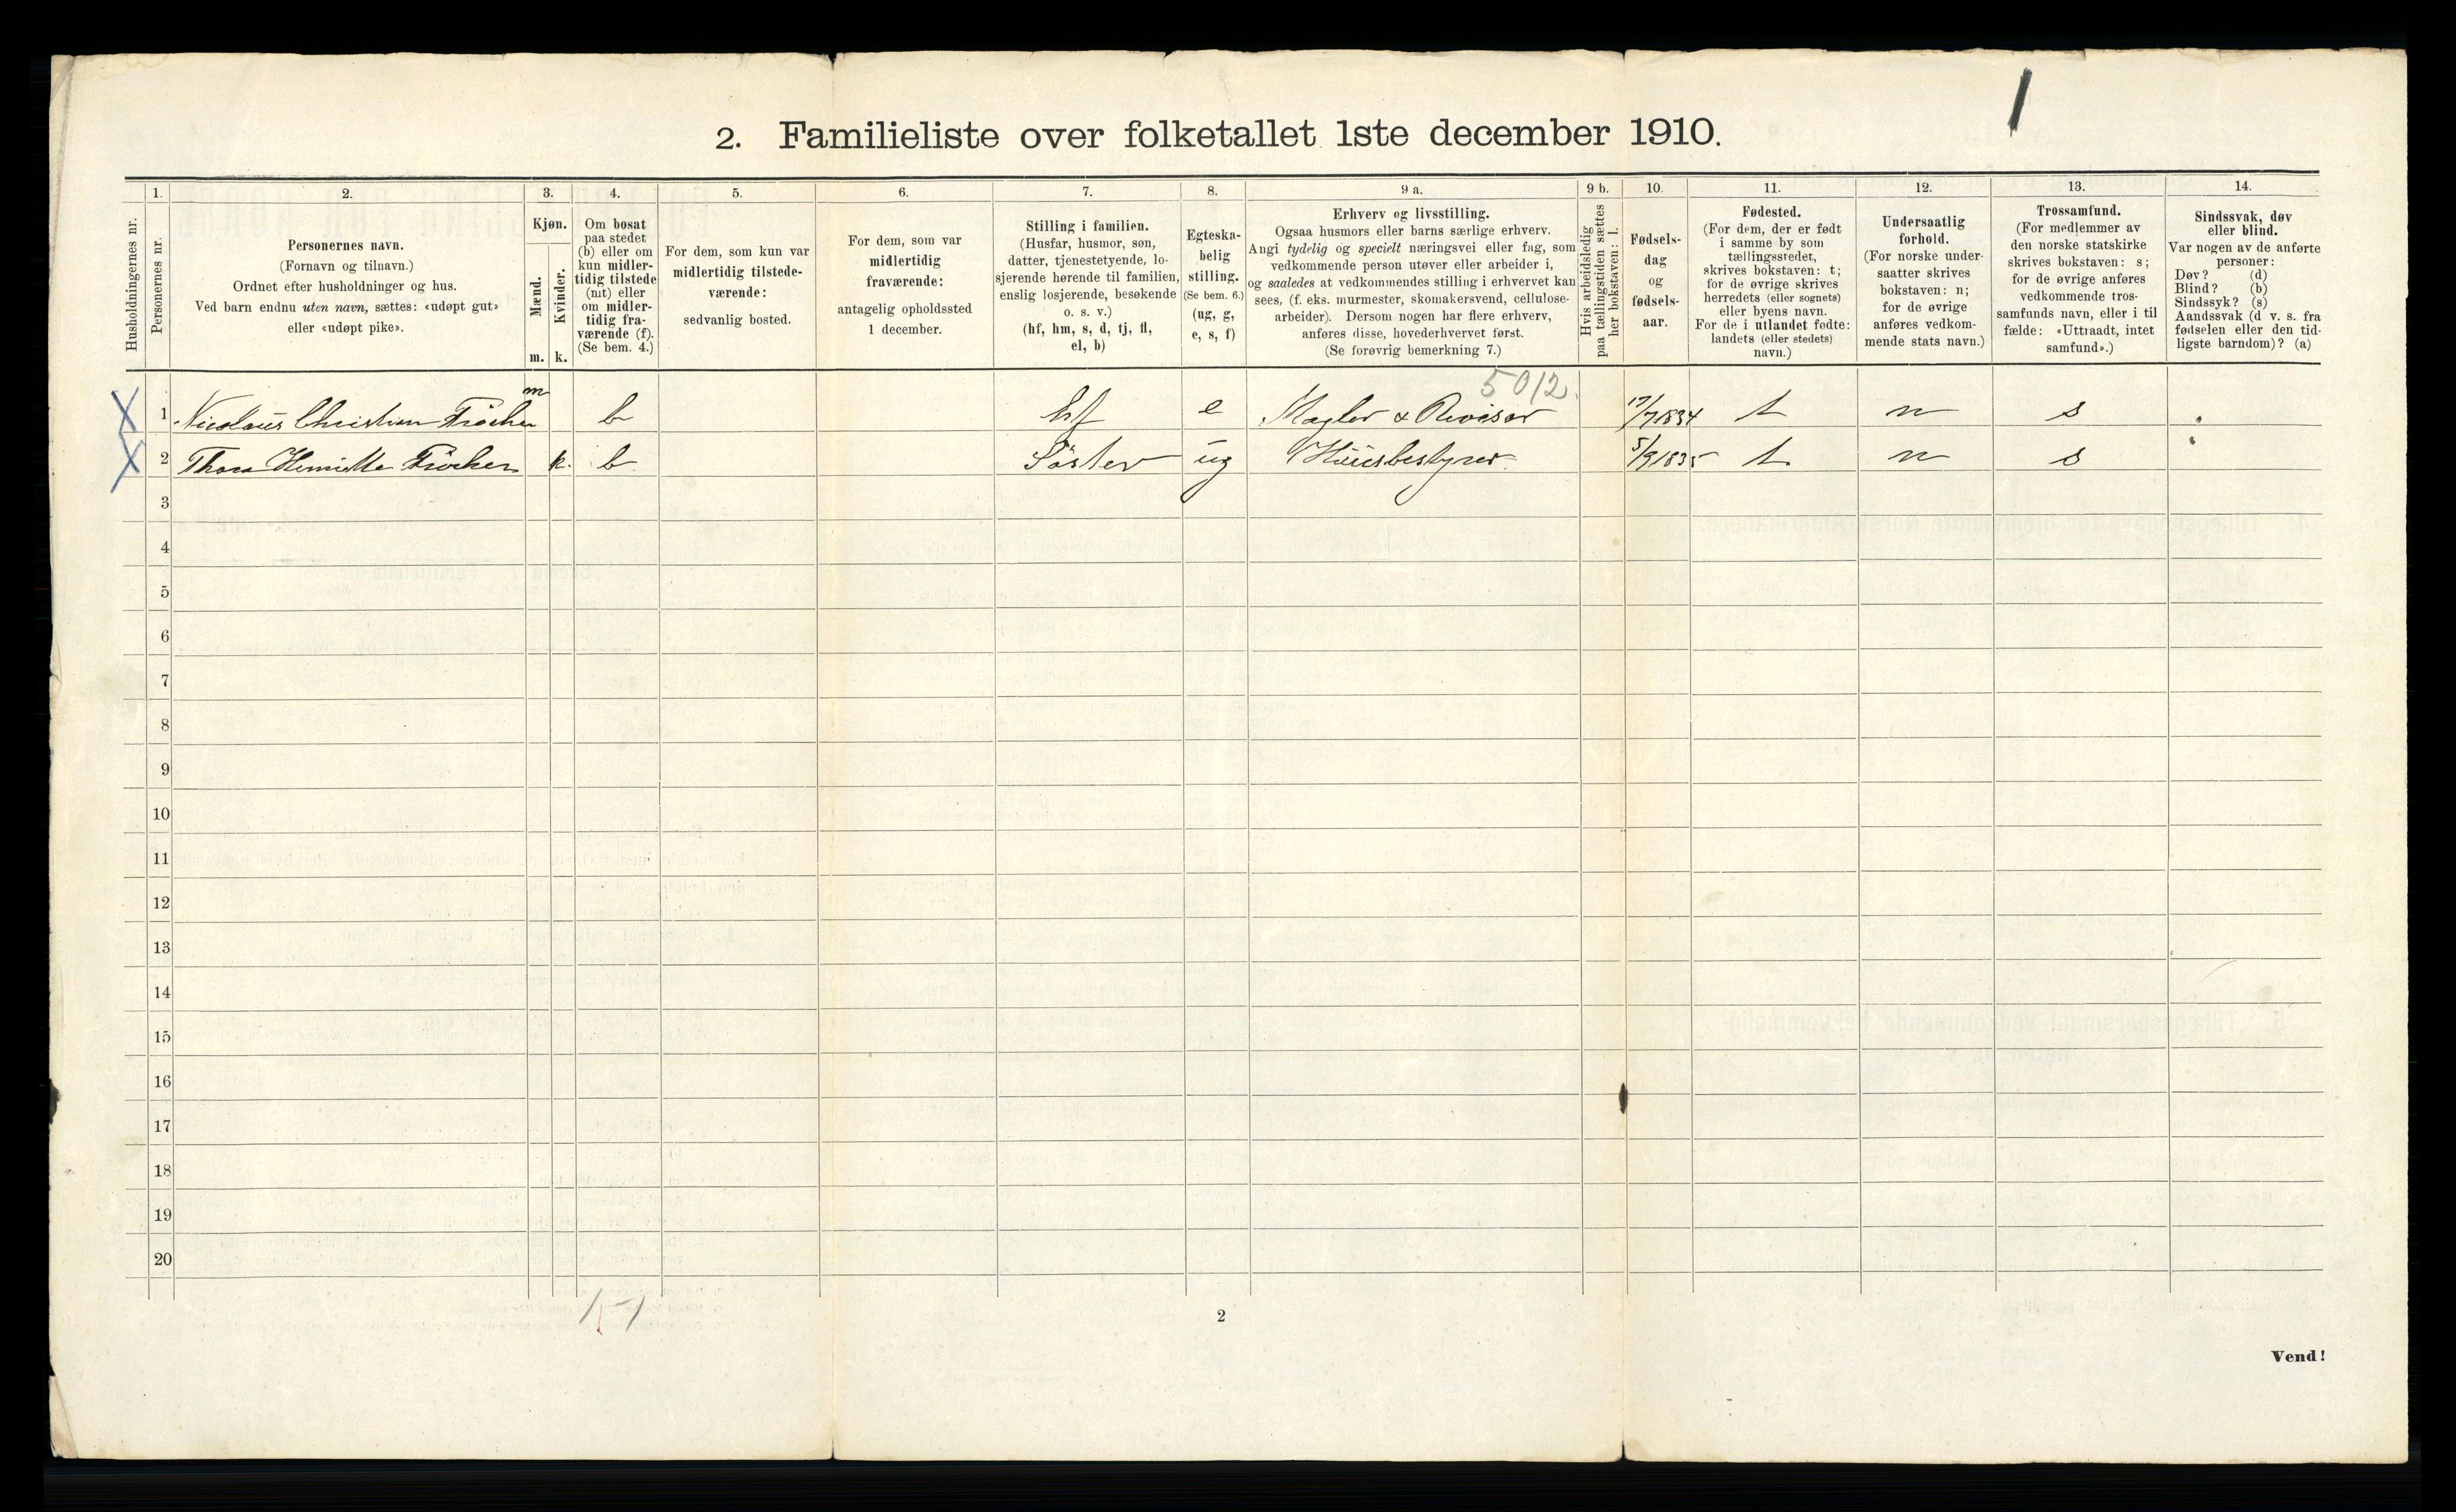 2. Familieliste over folketallet 1ste december 1910.
Husholdningernes nr.
1.
Personernes nr.
2.
Personernes navn.
(Fornavn og tilnavn.)
Ordnet efter husholdninger og hus.
Ved barn endnu uten navn, sættes: «udøpt gut»
eller «udøpt pike».
3.
Kjøn.
Mænd.
Kvinder.
m. k.
4.
Om bosat
paa stedet
(b) eller om
kun midler-
tidig tilstede
(mt) eller
om midler-
tidig fra-
værende (f).
(Se bem. 4.)
5.
For dem, som kun var
midlertidig tilstede-
værende:
sedvanlig bosted.
6.
For dem, som var
midlertidig
fraværende:
antagelig opholdssted
1 december.
7.
Stilling i familien.
(Husfar, husmor, søn,
datter, tjenestetyende, lo-
sjerende hørende til familien,
enslig losjerende, besøkende
o. s. v.)
(hf, hm, s, d, tj, fl,
el, b)
8.
Egteska-
belig
stilling.
(Se bem. 6.)
(ug, g,
e, s, f)
9 a.
Erhverv og livsstilling.
Ogsaa husmors eller barns særlige erhverv.
Angi tydelig og specielt næringsvei eller fag, som
vedkommende person utøver eller arbeider i,
og saaledes at vedkommendes stilling i erhvervet kan
sees, (f. eks. murmester, skomakersvend, cellulose-
arbeider). Dersom nogen har flere erhverv,
anføres disse, hovederhvervet først.
(Se forøvrig bemerkning 7.)
9 b.
Hvis arbeidsledig
paa tællingstiden sættes
her bokstaven: l.
10.
Fødsels-
dag
og
fødsels-
aar.
11.
Fødested.
(For dem, der er født
i samme by som
tællingsstedet,
skrives bokstaven: t;
for de øvrige skrives
herredets (eller sognets)
eller byens navn.
For de i utlandet fødte:
landets (eller stedets)
navn.)
12.
Undersaatlig
forhold.
(For norske under-
saatter skrives
bokstaven: n;
for de øvrige
anføres vedkom-
mende stats navn.)
13.
Trossamfund.
(For medlemmer av
den norske statskirke
skrives bokstaven: s;
for de øvrige anføres
vedkommende tros-
samfunds navn, eller i til
fælde: «Uttraadt, intet
samfund».)
14.
Sindssvak, døv
eller blind.
Var nogen av de anførte
personer:
Døv? (d)
Blind? (b)
Sindssyk? (s)
Aandssvak (d v. s. fra
fødselen eller den tid-
ligste barndom)? (a)
5012
1 Nicolaus Christian m b hf e Mægler & Revisor 17/7 1834 t n s
2 Thora Henriette k. b Søster ug Huusbestyrer 5/9 1835 t n s
3
4
5
6
7
8
9
10
11
12
13
14
15
16
17
18
19
20
1-1
2
Vend!